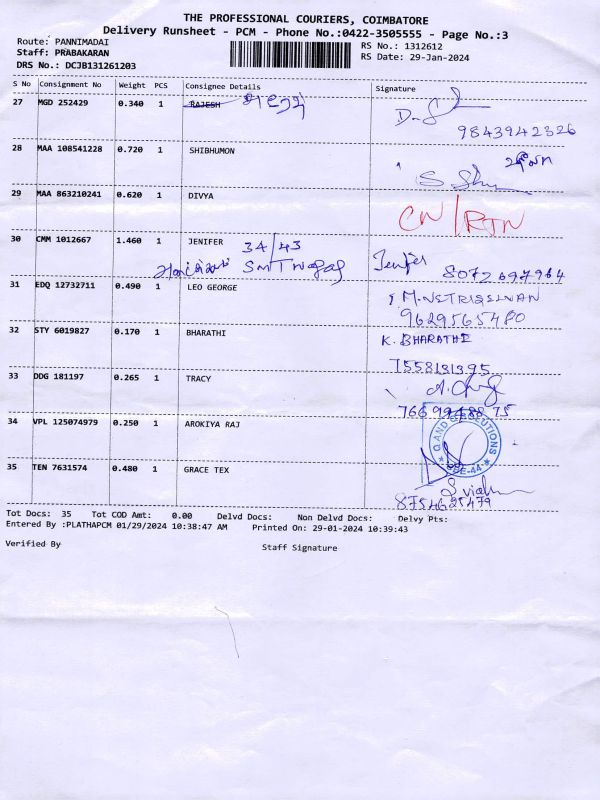 THE PROFESSIONAL COURIERS, COIMBATORE
Delivery Runsheet - PCM - Phone No.:0422-3505555 - Page No.:3
Route: PANNIMADAI
RS No.: 1312612
Staff: PRABAKARAN
RS Date: 29-Jan-2024
DRS No.: DCJB131261203
S No Consignment No Weight PCS Consignee Details Signature
27 MGD 252429 0.340 1 RAJESH
9843942326
28 MAA 108541228 0.720 1 SHIBHUMON
29 MAA 863210241 0.620 1 DIVYA CN/RTN
30 CMM 1012667 1.460 1 JENIFER 34/43
Jenifer 8072697964
31 EDQ 12732711 0.490 1 LEO GEORGE
9629565480
32 STY 6019827 0.170 1 BHARATHI K. BHARATHI
7558131395
33 DDG 181197 0.265 1 TRACY
34 VPL 125074979 0.250 1 AROKIYA RAJ
35 TEN 7631574 0.480 1 GRACE TEX
8754625479
Tot Docs: 35 Tot COD Amt: 0.00 Delvd Docs: Non Delvd Docs: Delvy Pts:
Entered By :PLATHAPCM 01/29/2024 10:38:47 AM Printed On: 29-01-2024 10:39:43
Verified By Staff Signature